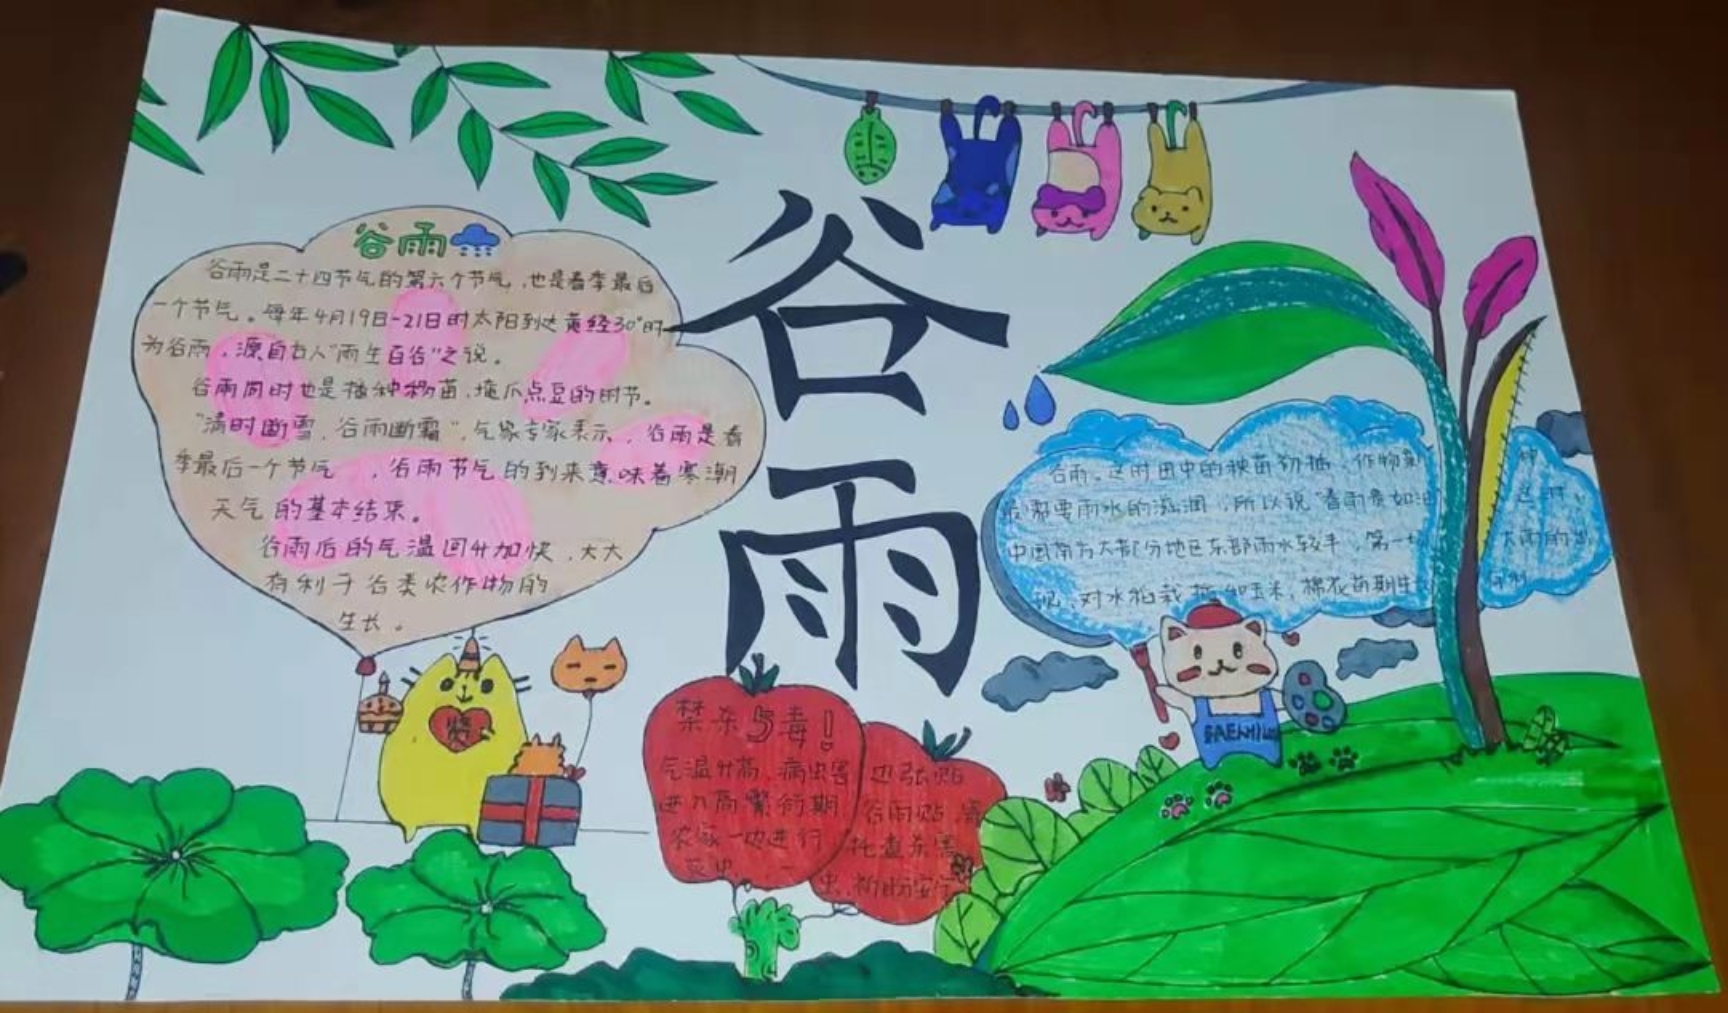 谷雨
谷雨是二十四节气的第六个节气，也是春季最后
一个节气。每年4月19日-21日时太阳到达黄经30°时
为谷雨，源自古人"雨生百谷"之说。
谷雨同时也是播种移苗、掩瓜点豆的时节。
"清明断雪，谷雨断霜"，气象专家表示，谷雨是春
季最后一个节气，谷雨节气的到来意味着寒潮
天气的基本结束。
谷雨后的气温回升加快，大大
有利于谷类农作物的
生长。
谷雨
谷雨，这时田中的秧苗初插、作物新种
最需要雨水的滋润，所以说"春雨贵如油 这时
中国南方大部分地区东部雨水较丰，第一 大雨的出
现，对水稻栽插和玉米、棉花苗期生 有利
禁杀五毒！
气温升高，病虫害
进入高繁衍期
农家一边进行
灭虫，一
也张贴
谷雨贴，寄
托查杀害
虫，祈盼安宁
BAEMIU